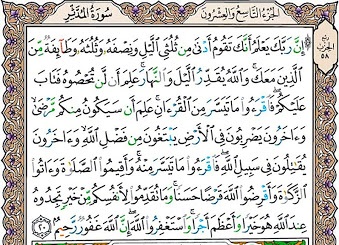 الجزء التاسع والعشرون
سورة المزمل
ربع
الحزب
٥٨
۞ إِنَّ رَبَّكَ يَعْلَمُ أَنَّكَ تَقُومُ أَدْنَىٰ مِن ثُلُثَيِ ٱلَّيْلِ وَنِصْفَهُۥ وَثُلُثَهُۥ وَطَآئِفَةٌ مِّنَ
ٱلَّذِينَ مَعَكَۚ وَٱللَّهُ يُقَدِّرُ ٱلَّيْلَ وَٱلنَّهَارَۚ عَلِمَ أَن لَّن تُحْصُوهُ فَتَابَ
عَلَيْكُمْۖ فَٱقْرَءُوا۟ مَا تَيَسَّرَ مِنَ ٱلْقُرْءَانِۚ عَلِمَ أَن سَيَكُونُ مِنكُم مَّرْضَىٰ
وَءَاخَرُونَ يَضْرِبُونَ فِى ٱلْأَرْضِ يَبْتَغُونَ مِن فَضْلِ ٱللَّهِۙ وَءَاخَرُونَ
يُقَٰتِلُونَ فِى سَبِيلِ ٱللَّهِۖ فَٱقْرَءُوا۟ مَا تَيَسَّرَ مِنْهُۚ وَأَقِيمُوا۟ ٱلصَّلَوٰةَ وَءَاتُوا۟
ٱلزَّكَوٰةَ وَأَقْرِضُوا۟ ٱللَّهَ قَرْضًا حَسَنًاۚ وَمَا تُقَدِّمُوا۟ لِأَنفُسِكُم مِّنْ خَيْرٍ تَجِدُوهُ
عِندَ ٱللَّهِ هُوَ خَيْرًا وَأَعْظَمَ أَجْرًاۚ وَٱسْتَغْفِرُوا۟ ٱللَّهَۖ إِنَّ ٱللَّهَ غَفُورٌ رَّحِيمٌۢ ٢٠